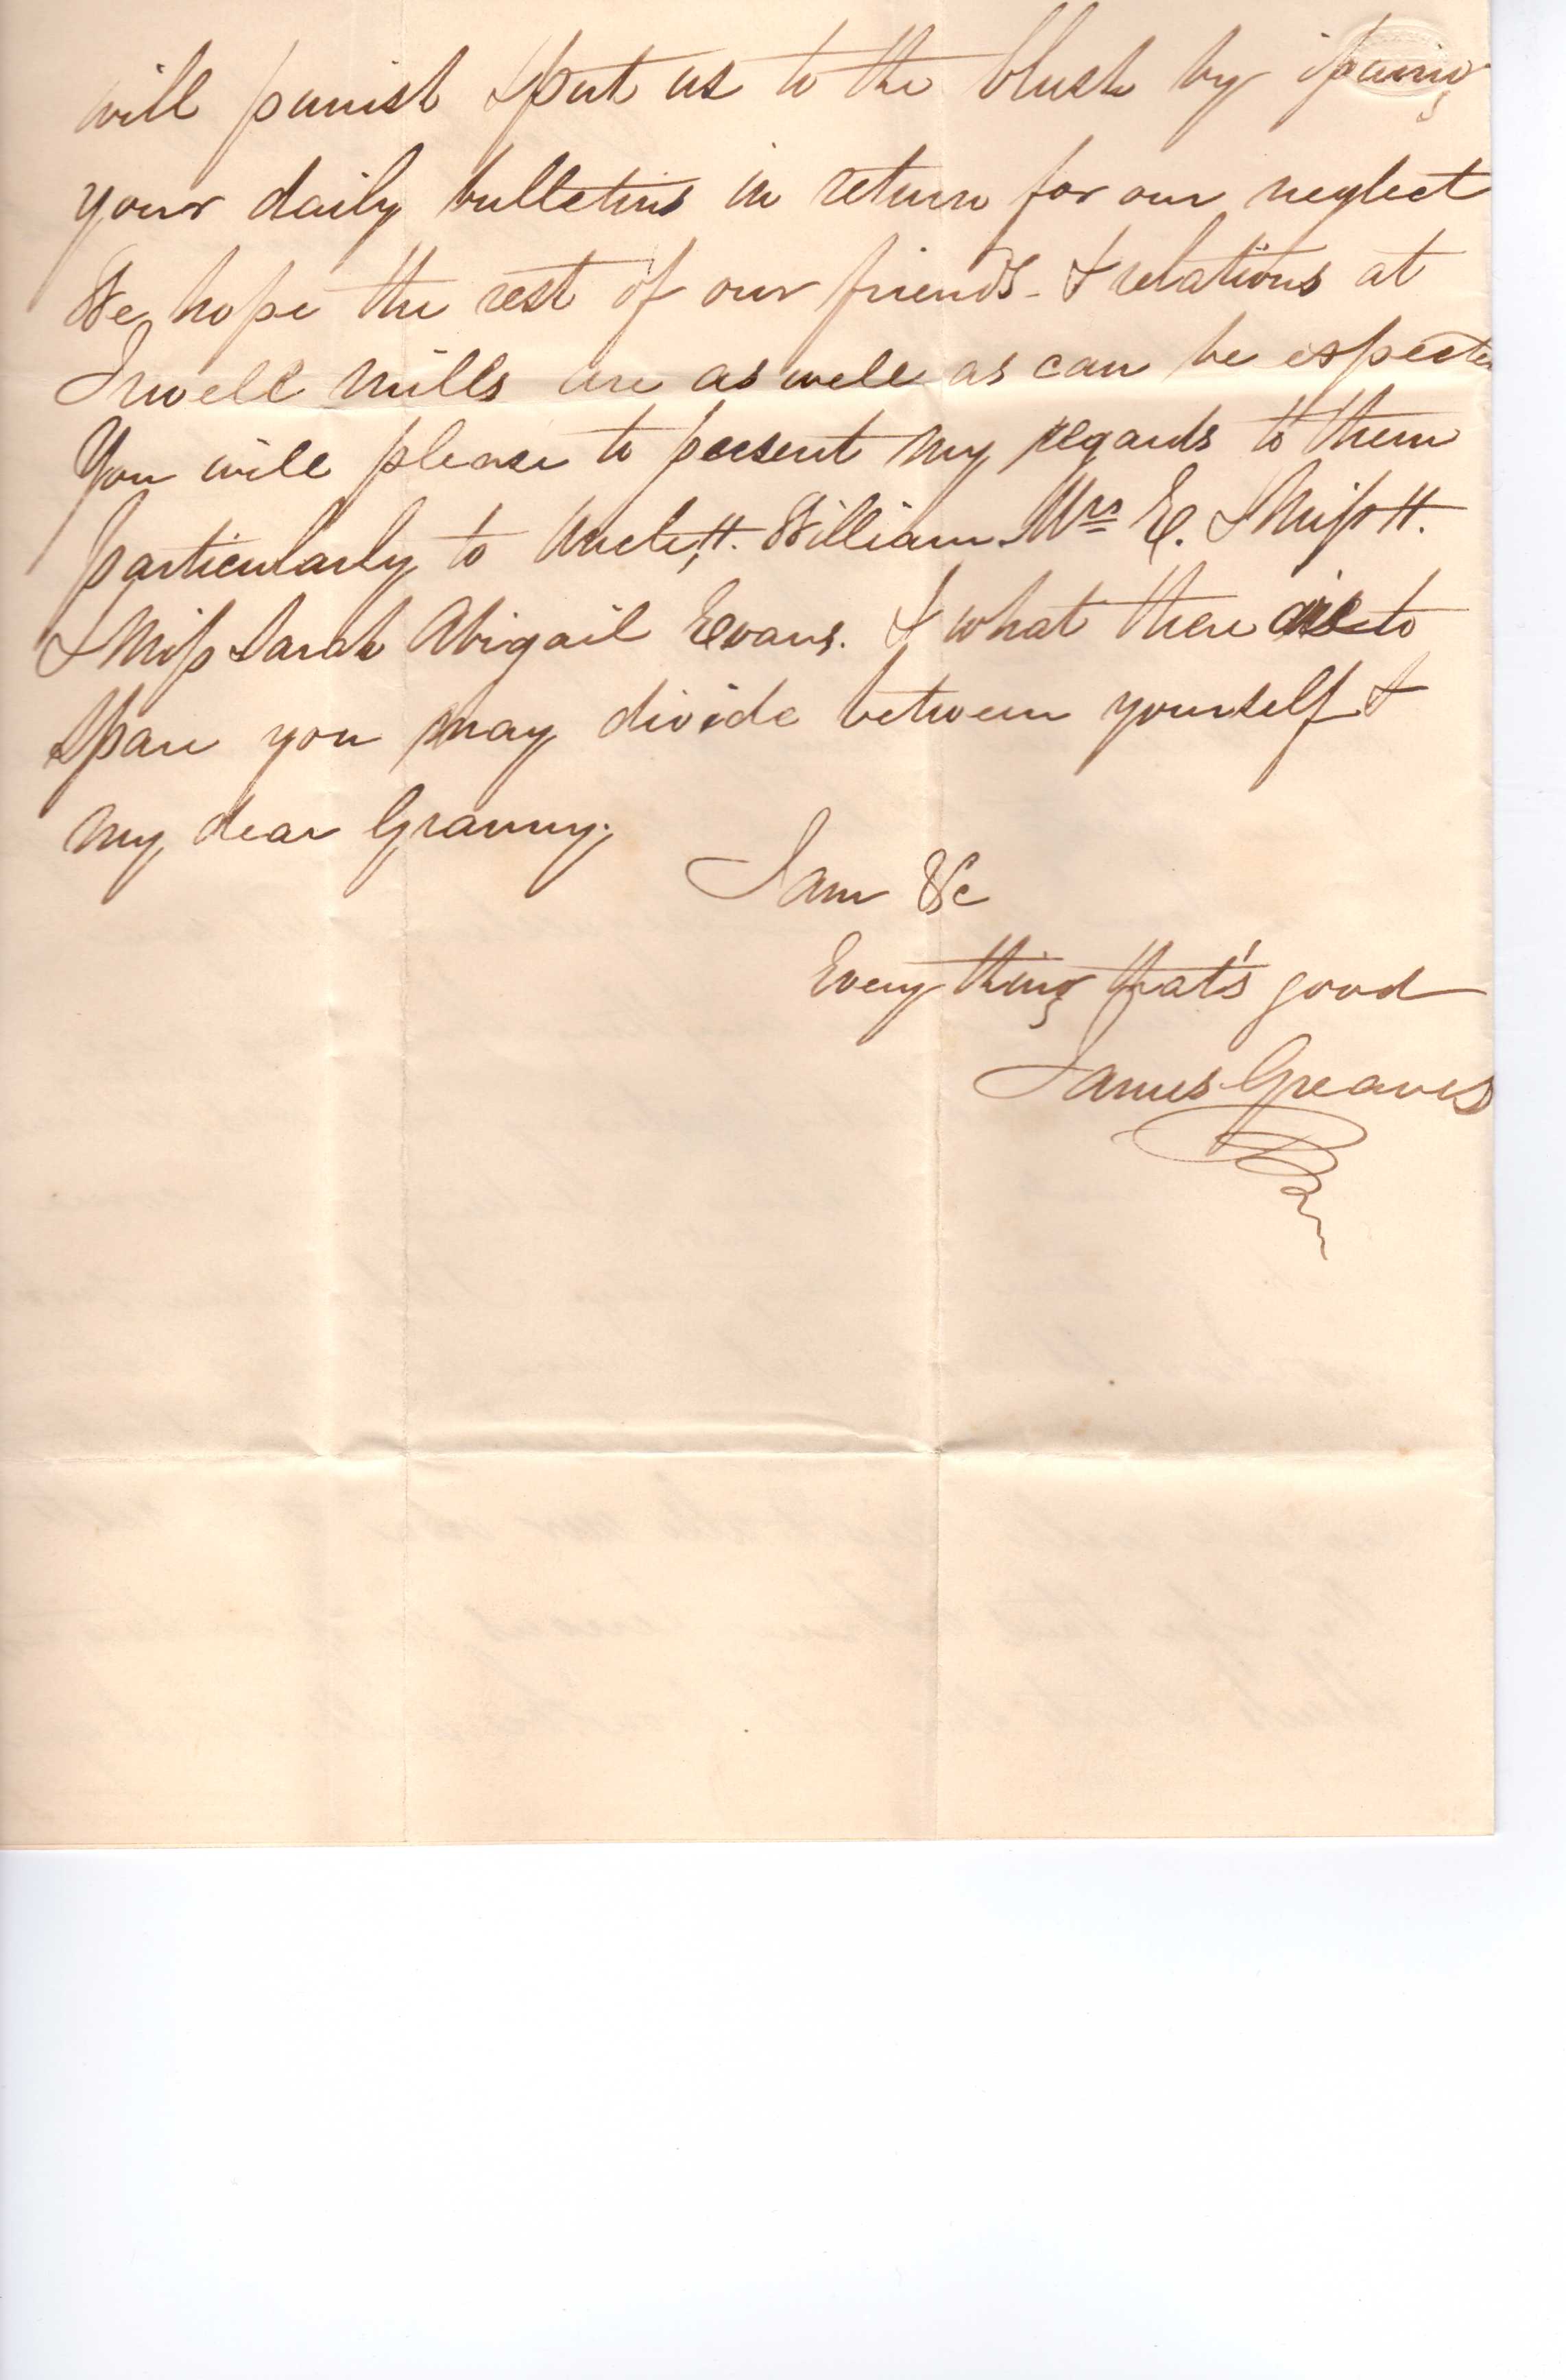 will punish & put us to the blush by issuing
your daily bulletins in return for our neglect
We hope the rest of our friends - & relations at
Irwell Mills are as well as can be expected
You will please to present my regards to them
particularly to Uncle, H. William Mrs E. & Miss H.
& Miss Sarah Abigail Evans. & what there is to
spare you may divide between yourself &
my dear Granny.
I am &c
Every thing that's good
James Greaves